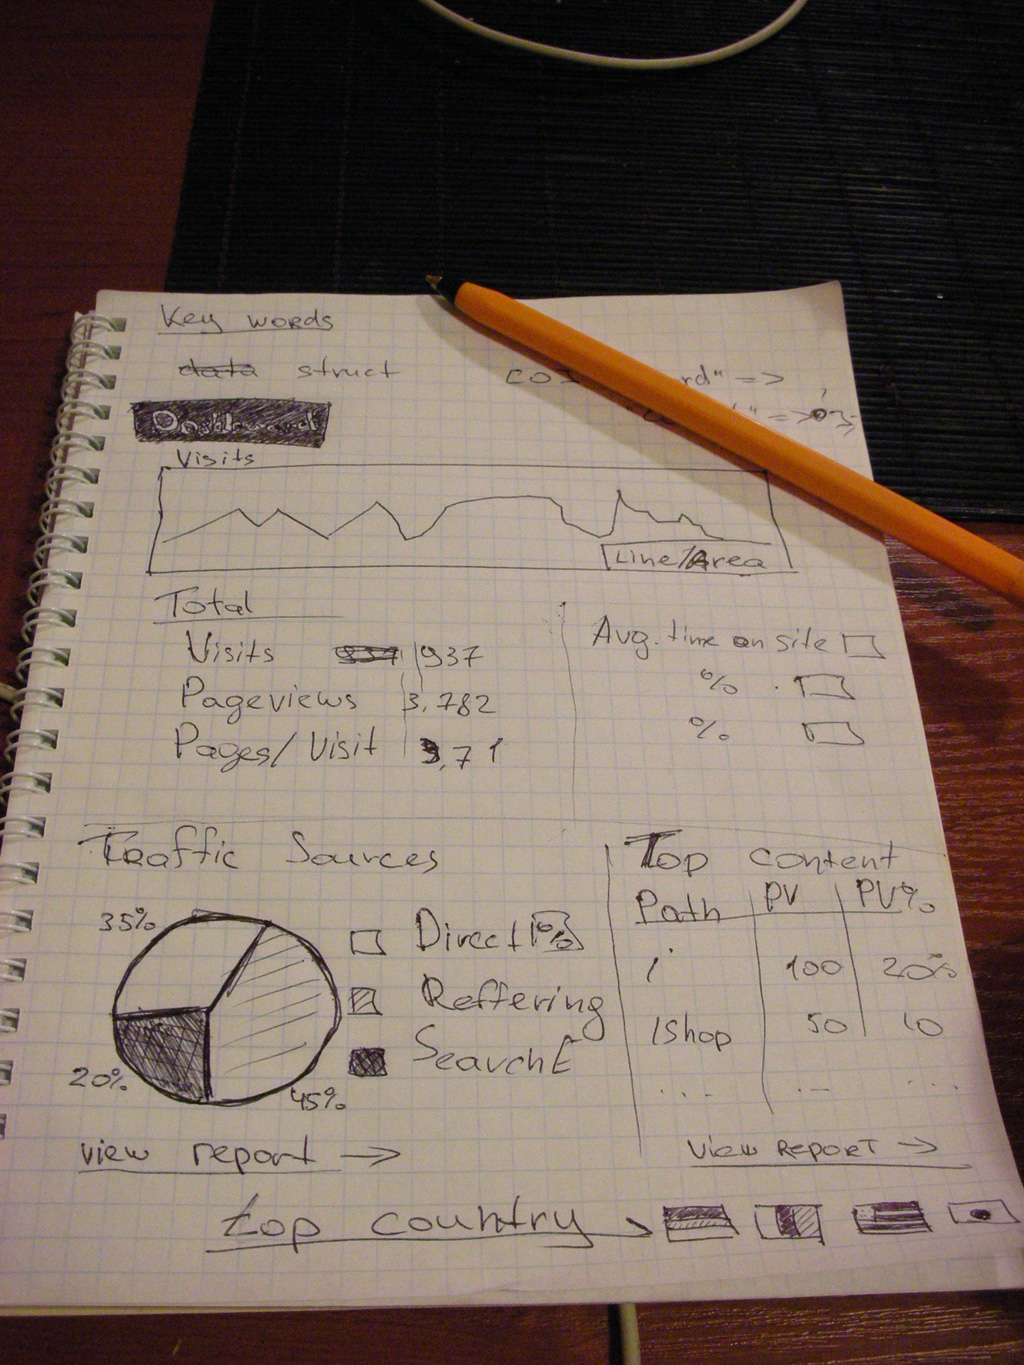 Key words
data struct
rd" =>
" =>
Dashboard
Visits
Line/Area
Total
Visits 937
Pageviews 3,782
Pages/Visit 3,71
Avg. time on site
%
%
Traffic Sources
35%
20%
45%
Direct %
Reffering
SearchE
view report →
Top content
Path PV PV%
/ 100 20%
/Shop 50 10
.... ... ....
View REPORT →
top country